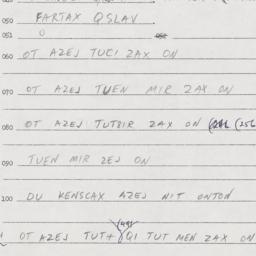 050 FARTAX QSLAV
051
060 OT AZEJ TUCI ZAX ON
070 OT AZEJ TUEN MIR ZAX ON
080 OT AZEJ TUTBIR ZAX ON
090 TUEN MIR ZEJ ON
100 DU KENSCAX AZEJ NIT ONTON
OT AZEJ TUT+ QI TUT MEN ZAX ON